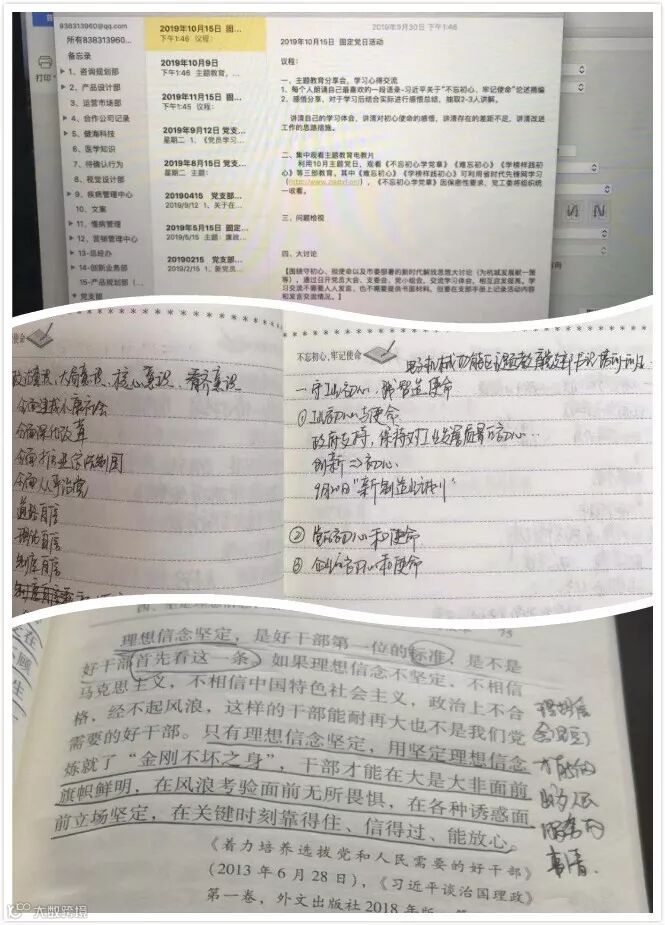 938313960@qq.com
所有938313960...
备忘录
1、咨询规划部
2、产品设计部
3、运营市场部
4、合作公司记录
5、健海科技
6、医学知识
7、待确认行为
8、视觉设计部
9、疾病管理中心
10、文案
11、慢病管理
12、营销管理中心
13-总经办
14-创新业务部
15-产品规划部（...
党支部
打印
2019年10月15日 固...
下午1:46 议程：
2019年10月9日
下午1:46 主题教育，...
2019年11月15日
下午1:45 议程：
2019年9月12日 党支...
星期二 1、《党员学习...
2019年8月15日 党支...
星期二 主题：
20190415 党支部...
2019/9/12 1、关于在...
2019年5月15日 党支部
2019/5/15 主题：廉政...
20190215 党支部...
2019/2/15 1、新党员...
2019年9月30日 下午1:46
2019年10月15日 固定党日活动
议程：
一、主题教育分享会，学习心得交流
1、每个人朗诵自己最喜欢的一段语录-习近平关于“不忘初心、牢记使命”论述摘编
2、感悟分享，对于学习后结合实际进行感悟总结，抽取2-3人讲解。
讲清自己的学习体会，讲清对初心使命的感悟，讲清存在的差距不足，讲清改进
工作的思路措施。
二、集中观看主题教育电教片
利用10月主题党日，观看《不忘初心学党章》《难忘初心》《学榜样践初
心》等三部教育，其中《难忘初心》《学榜样践初心》可利用省时代先锋网学习
），《不忘初心学党章》因保密性要求，党工委将组织统
一收看。
三、问题检视
四、大讨论
【围绕守初心、担使命以及市委部署的新时代解放思想大讨论（为杭城发展献一策
等），通过召开党员大会、支委会、党小组会，交流学习体会，相互启发提高。学
习交流不需要人人发言，也不需要提供书面材料，但要在支部手册上记录活动内容
和发言交流情况。】
使命
政治意识、大局意识、核心意识、看齐意识
全面建成小康社会
全面深化改革
全面依法治国
全面从严治党
道路自信
理论自信
制度自信
不忘初心、牢记使命
一、守初心，
① 初心与使命
创新 ⇒ 初心
9月20日“新制造业计划”
② 党的初心和使命
③ 企业的初心和使命
理想信念坚定，是好干部第一位的标准，是不是
好干部首先看这一条。如果理想信念不坚定、不相信
马克思主义，不相信中国特色社会主义，政治上不合
格，经不起风浪，这样的干部能耐再大也不是我们党
需要的好干部。只有理想信念坚定，用坚定理想信念
炼就了“金刚不坏之身”，干部才能在大是大非面前
旗帜鲜明，在风浪考验面前无所畏惧，在各种诱惑面
前立场坚定，在关键时刻靠得住、信得过、能放心。
《着力培养选拔党和人民需要的好干部》
（2013年6月28日），《习近平谈治国理政》
第一卷，外文出版社2018年版，第
理想信
念坚定
才能为
人民
服务
大数跨境